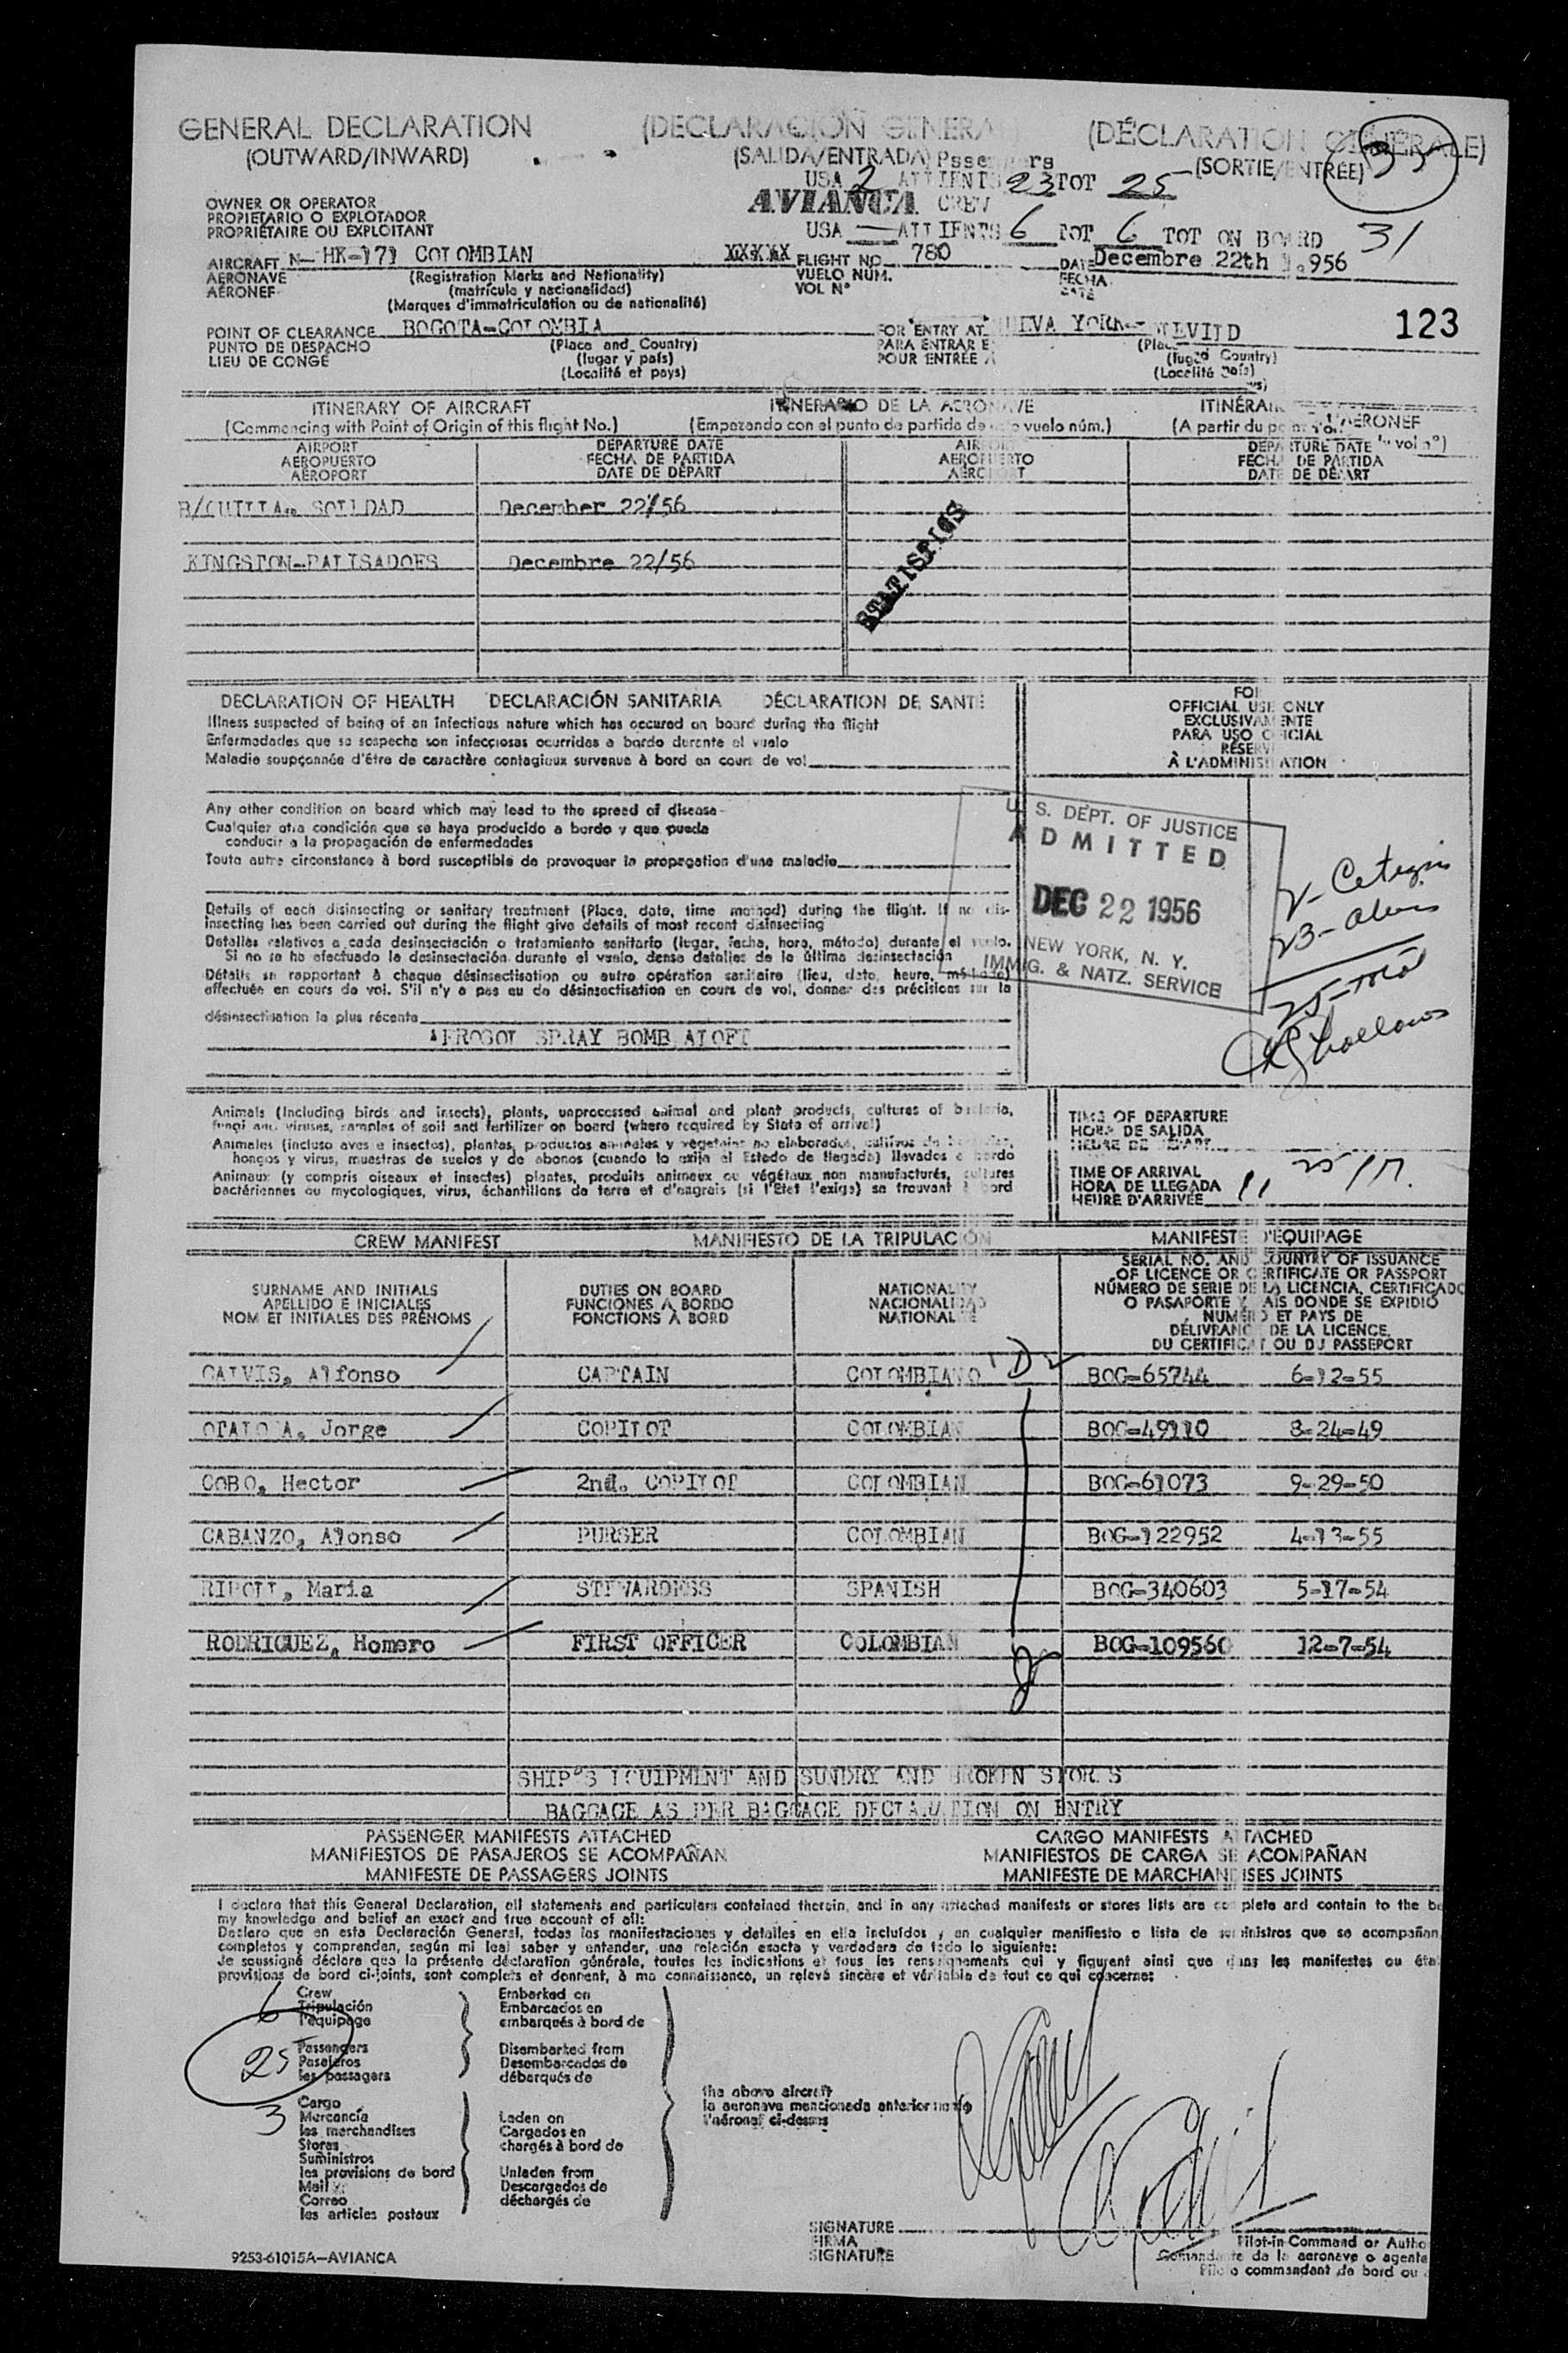 GENERAL DECLARATION (DECLARACIÓN GENERA (DÉCLARATION GÉNÉRALE)
(OUTWARD/INWARD) (SALIDA/ENTRADA) (SORTIE/ENTRÉE) 33
USA 2 23 TOT 25
OWNER OR OPERATOR AVIANCA CREW
PROPIETARIO O EXPLOTADOR
PROPRIÉTAIRE OU EXPLOITANT USA — 6 TOT 6 TOT ON BOARD 31
AIRCRAFT N-HK-171 COLOMBIAN XXXXX FLIGHT NO. 780 DATE Decembre 22th 1.956
AERONAVE (Registration Marks and Nationality) VUELO NÚM. FECHA
AÉRONEF (matrícula y nacionalidad) VOL Nº DATE
(Marques d'immatriculation ou de nationalité)
123
POINT OF CLEARANCE BOGOTA-COLOMBIA FOR ENTRY AT NUEVA YORK-
PUNTO DE DESPACHO (Place and Country) PARA ENTRAR E
LIEU DE CONGÉ (lugar y país) POUR ENTRÉE A
(Localité et pays)
ITINERARY OF AIRCRAFT ITINERARIO DE LA AERONAVE
(Commencing with Point of Origin of this flight No.) (Empezando con el punto de partida de vuelo núm.)
AIRPORT DEPARTURE DATE AIRPORT DEPARTURE DATE
AEROPUERTO FECHA DE PARTIDA AEROPUERTO FECHA DE PARTIDA
AÉROPORT DATE DE DÉPART AÉROPORT DATE DE DÉPART
B/QUILLA- SOLEDAD December 22/56
KINGSTON-PALISADOES Decembre 22/56
STATISTICS
DECLARATION OF HEALTH DECLARACIÓN SANITARIA DÉCLARATION DE SANTÉ
Illness suspected of being of an infectious nature which has occured on board during the flight
Enfermedades que se sospecha son infecciosas ocurridas a bordo durante el vuelo
Maladie soupçonnée d'être de caractère contagieux survenue à bord en cours de vol
FOR
OFFICIAL USE ONLY
EXCLUSIVAMENTE
PARA USO OFICIAL
RÉSERVÉ
À L'ADMINISTRATION
Any other condition on board which may lead to the spread of disease
Cualquier otra condición que se haya producido a bordo y que pueda
conducir a la propagación de enfermedades
Toute autre circonstance à bord susceptible de provoquer la propagation d'une maladie
U. S. DEPT. OF JUSTICE
ADMITTED
DEC 22 1956
NEW YORK, N. Y.
IMMIG. & NATZ. SERVICE
2- Citizens
23- aliens
25- Total
Details of each disinsecting or sanitary treatment (Place, date, time method) during the flight. If no dis-
insecting has been carried out during the flight give details of most recent disinsecting
Detalles relativos a cada desinsectación o tratamiento sanitario (lugar, fecha, hora, método) durante el vuelo.
Si no se ha efectuado la desinsectación durante el vuelo, dense detalles de la última desinsectación
Détails se rapportant à chaque désinsectisation ou autre opération sanitaire (lieu, date, heure, méthode)
effectuée en cours de vol. S'il n'y a pas eu de désinsectisation en cours de vol, donner des précisions sur la
désinsectisation la plus récente
AEROSOL SPRAY BOMB ALOFT
Animals (Including birds and insects), plants, unprocessed animal and plant products, cultures of bacteria,
fungi and viruses, samples of soil and fertilizer on board (where required by State of arrival)
Animales (incluso aves e insectos), plantas, productos animales y vegetales no elaborados, cultivos de bacterias,
hongos y virus, muestras de suelos y de abonos (cuando lo exija el Estado de llegada) llevados a bordo
Animaux (y compris oiseaux et insectes) plantes, produits animaux ou végétaux non manufacturés, cultures
bactériennes ou mycologiques, virus, échantillons de terre et d'engrais (si l'Etat l'exige) se trouvant à bord
TIME OF DEPARTURE
HORA DE SALIDA
HEURE DE DÉPART
TIME OF ARRIVAL
HORA DE LLEGADA
HEURE D'ARRIVÉE
CREW MANIFEST MANIFIESTO DE LA TRIPULACIÓN MANIFESTE D'ÉQUIPAGE
SURNAME AND INITIALS DUTIES ON BOARD NATIONALITY SERIAL NO. AND COUNTRY OF ISSUANCE
APELLIDO E INICIALES FUNCIONES A BORDO NACIONALIDAD OF LICENCE OR CERTIFICATE OR PASSPORT
NOM ET INITIALES DES PRÉNOMS FONCTIONS À BORD NATIONALITÉ NÚMERO DE SERIE DE LA LICENCIA, CERTIFICADO
O PASAPORTE Y PAIS DONDE SE EXPIDIÓ
NUMÉRO ET PAYS DE
DÉLIVRANCE DE LA LICENCE
DU CERTIFICAT OU DU PASSEPORT
CALVIS, Alfonso CAPTAIN COLOMBIANO BOG-65744 6-12-55
OTALORA, Jorge COPILOT COLOMBIAN BOG-49110 8-24-49
COBO, Hector 2nd. COPILOT COLOMBIAN BOG-61073 9-29-50
CABANZO, Alonso PURSER COLOMBIAN BOG-122952 4-13-55
RIPOLL, Maria STEWARDESS SPANISH BOG-340603 5-17-54
RODRIGUEZ, Homero FIRST OFFICER COLOMBIAN BOG-109560 12-7-54
SHIP'S EQUIPMENT AND SUNDRY AND BROKEN STORES
BAGGAGE AS PER BAGGAGE DECLARATION ON ENTRY
PASSENGER MANIFESTS ATTACHED CARGO MANIFESTS ATTACHED
MANIFIESTOS DE PASAJEROS SE ACOMPAÑAN MANIFIESTOS DE CARGA SE ACOMPAÑAN
MANIFESTE DE PASSAGERS JOINTS MANIFESTE DE MARCHANDISES JOINTS
I declare that this General Declaration, all statements and particulars contained therein, and in any attached manifests or stores lists are complete and contain to the be
my knowledge and belief an exact and true account of all:
Declaro que en esta Declaración General, todas las manifestaciones y detalles en ella incluídos y en cualquier manifiesto o lista de suministros que se acompañan
completos y comprenden, según mi leal saber y entender, una relación exacta y verdadera de todo lo siguiente:
Je soussigné déclare que la présente déclaration générale, toutes les indications et tous les renseignements qui y figurent ainsi que dans les manifestes ou éta
provisions de bord ci-joints, sont complets et donnent, à ma connaissance, un relevé sincère et véritable de tout ce qui concerne:
6 Crew Embarked on
Tripulación Embarcados en
l'equipage embarqués à bord de
25 Passengers Disembarked from
Pasajeros Desembarcados de
les passagers débarqués de
the above aircraft
la aeronave mencionada anteriormente
l'aéronef ci-dessus
3 Cargo
Mercancía Laden on
les marchandises Cargados en
Stores chargés à bord de
Suministros
les provisions de bord Unladen from
Mail Descargados de
Correo déchargés de
les articles postaux
SIGNATURE
FIRMA Pilot-in-Command or Autho
SIGNATURE Comandante de la aeronave o agente
Pilote commandant de bord ou
9253-61015A-AVIANCA